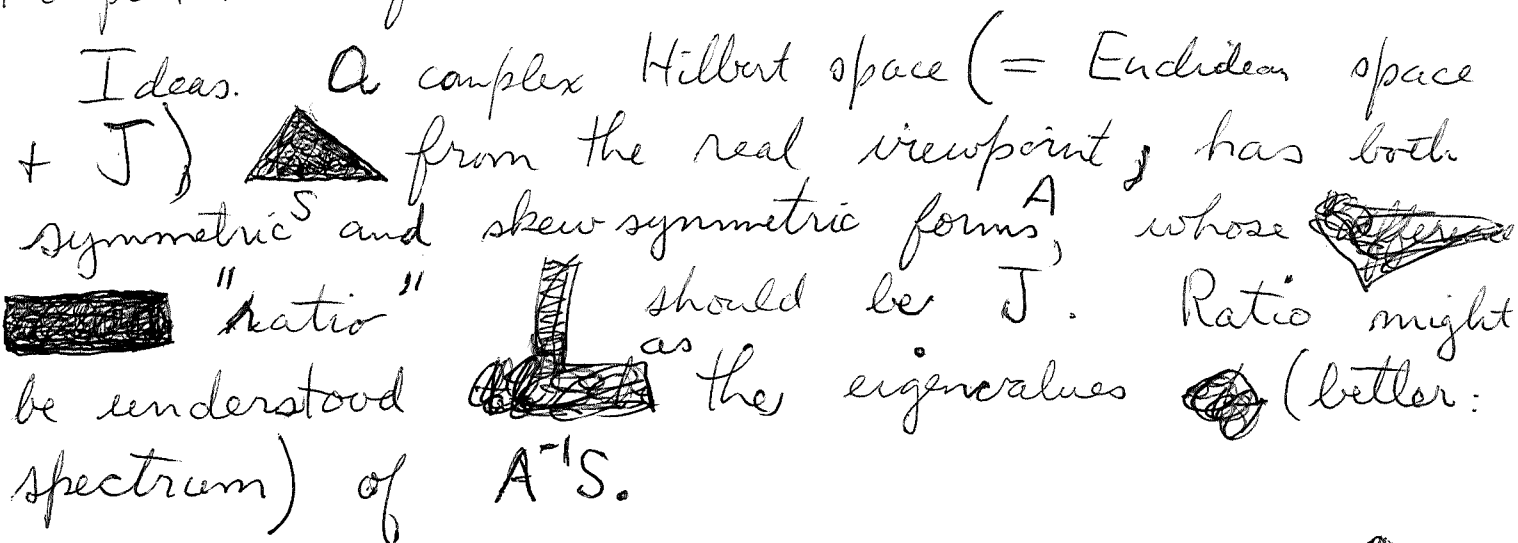 Ideas. A complex Hilbert space (= Euclidean space
+ J) from the real viewpoint, has both
symmetric S and skew symmetric forms A, whose
"ratio" should be J. Ratio might
be understood as the eigenvalues (better:
spectrum) of A⁻¹S.